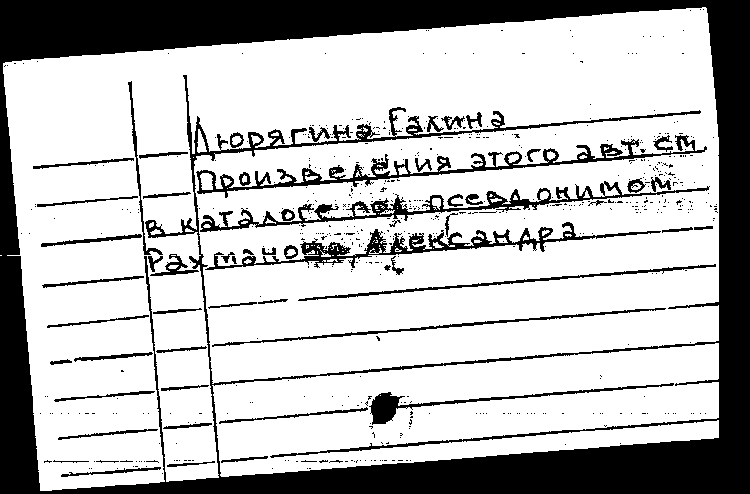 Дюрягина Галина
Произведения этого авт. см.
в каталоге под псевдонимом
Рахманова, Александра